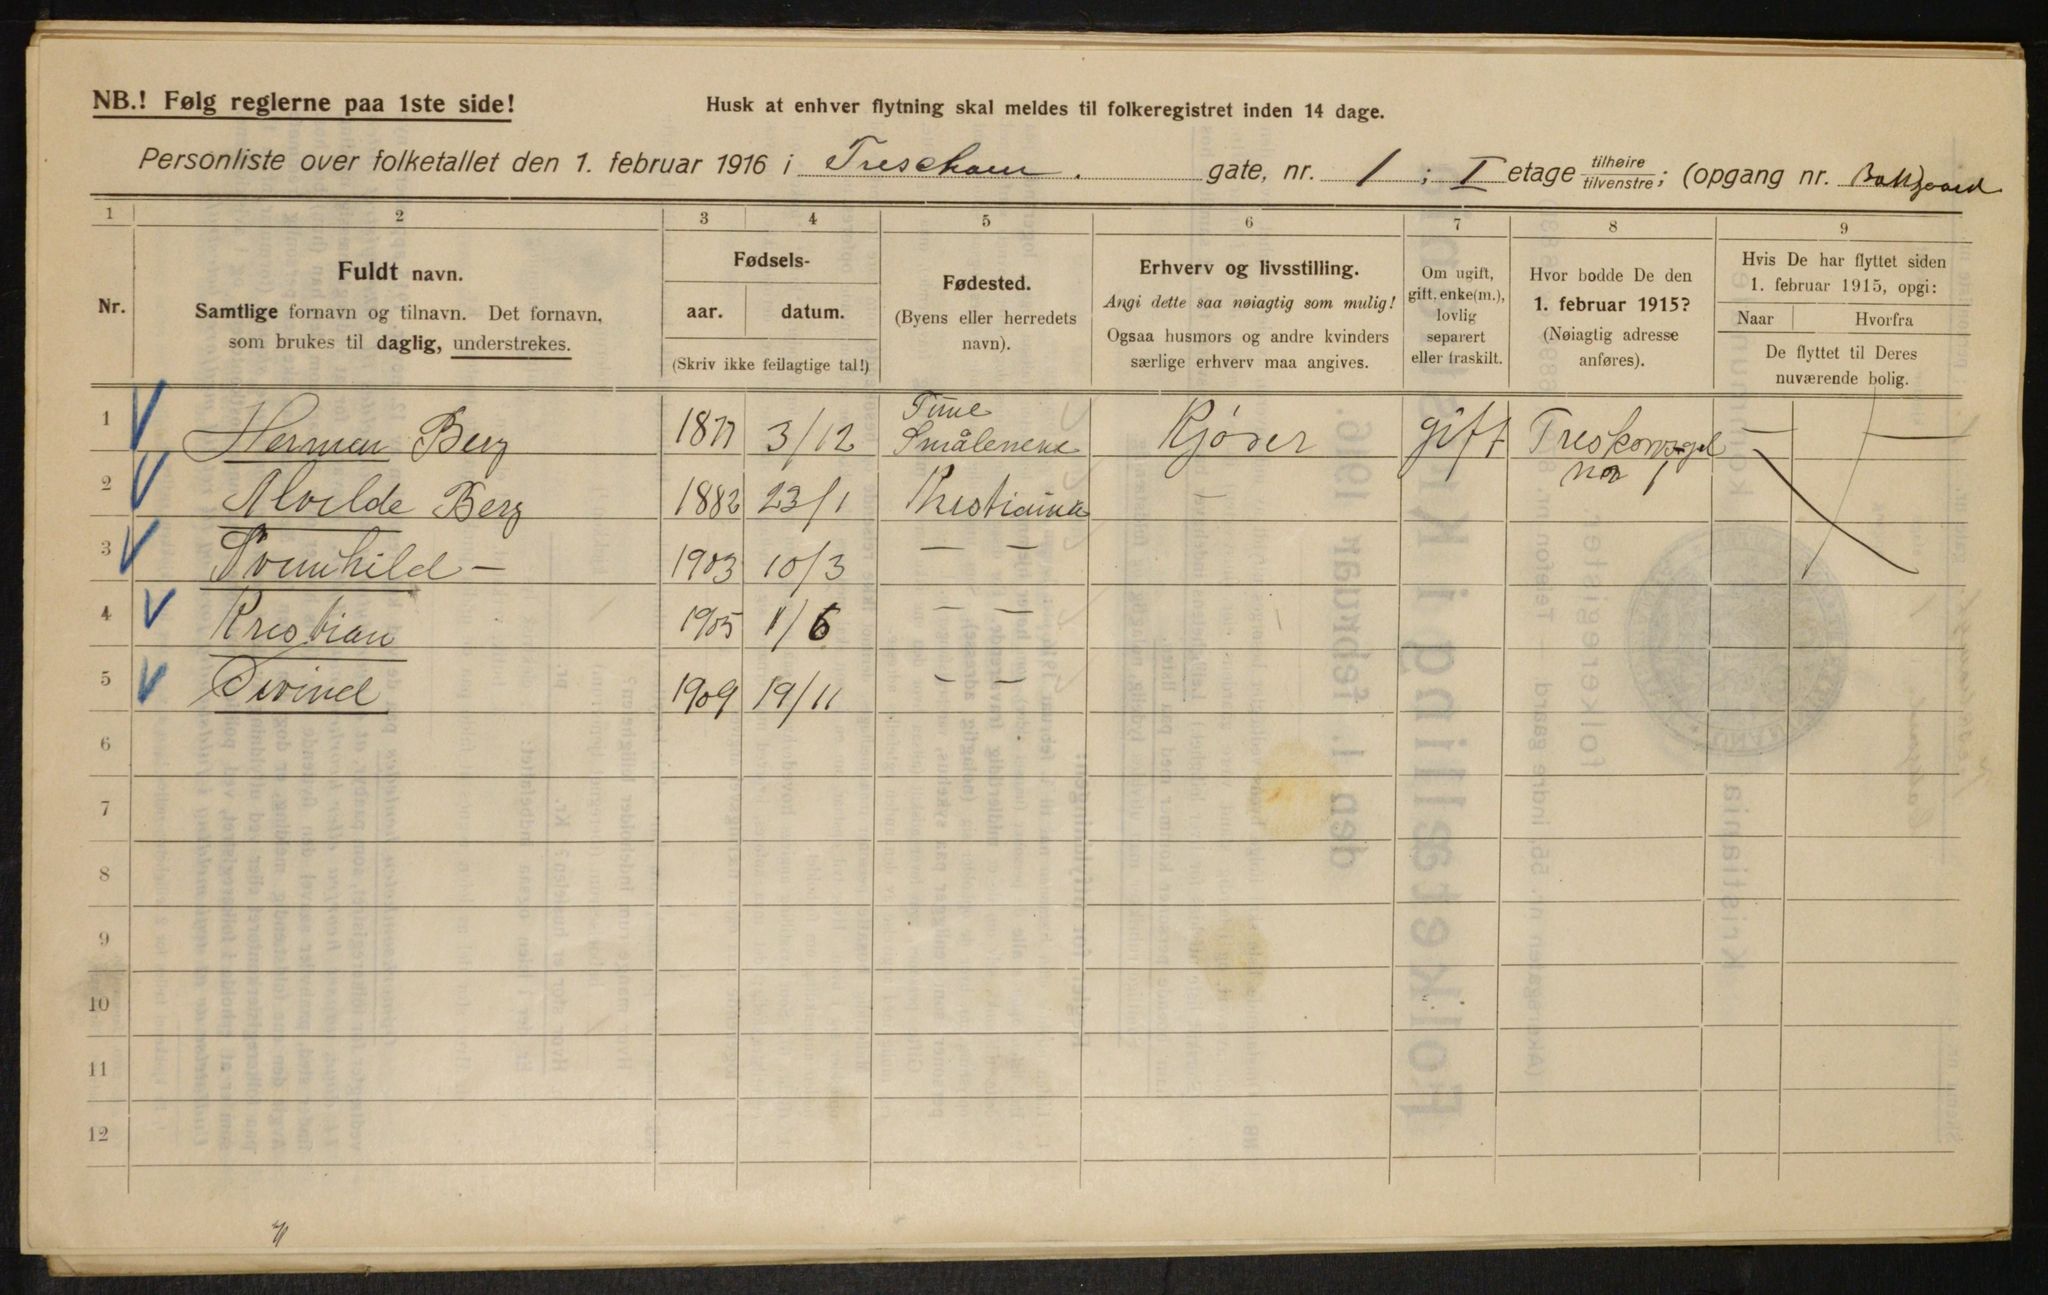 NB.! Følg reglerne paa 1ste side!
Husk at enhver flytning skal meldes til folkeregistret inden 14 dage.
Personliste over folketallet den 1. februar 1916 i Treschow gate, nr. 1 ; I etage tilhøire tilvenstre ; (opgang nr.
1 2 3 4 5 6 7 8 9
Nr.
Fuldt navn.
Samtlige fornavn og tilnavn. Det fornavn,
som brukes til daglig, understrekes.
Fødsels-
aar. datum.
(Skriv ikke feilagtige tal!)
Fødested.
(Byens eller herredets
navn).
Erhverv og livsstilling.
Angi dette saa nøiagtig som mulig!
Ogsaa husmors og andre kvinders
særlige erhverv maa angives.
Om ugift,
gift, enke(m.),
lovlig
separert
eller fraskilt.
Hvor bodde De den
1. februar 1915?
(Nøiagtig adresse
anføres).
Hvis De har flyttet siden
1. februar 1915, opgi:
Naar Hvorfra
De flyttet til Deres
nuværende bolig.
1 Herman Berg 1877 3/12 Tune Smålenene Kjører gift nr 1 — —
2 Alvilde Berg 1882 23/1 Kristiania —
3 Svenhild — 1903 10/3 — —
4 Kristian 1905 1/6 — —
5 Øivind 1909 19/11 — —
6
7
8
9
10
11
12